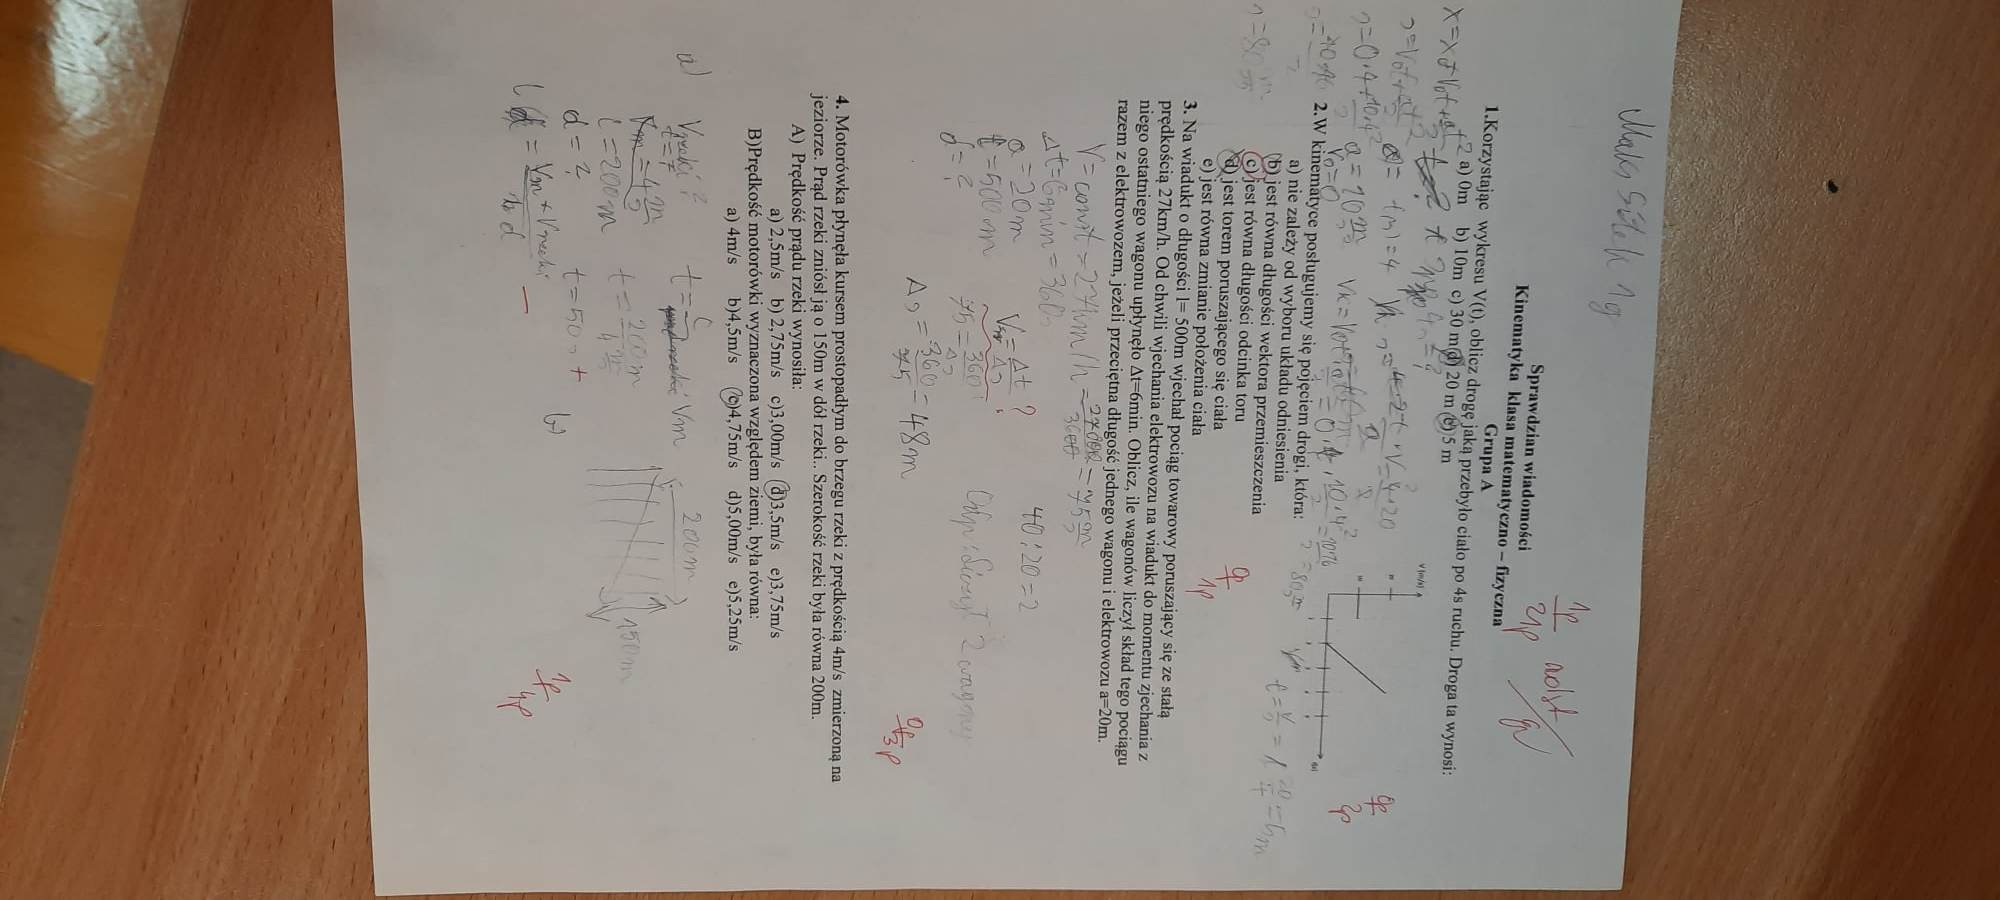 Maks Sitek 1g
1p
21p
ndst
Sprawdzian wiadomości
Kinematyka klasa matematyczno – fizyczna
Grupa A
1.Korzystając wykresu V(t), oblicz drogę jaką przebyło ciało po 4s ruchu. Droga ta wynosi:
a) 0m b) 10m c) 30 m d) 20 m e) 5 m
a = 10 m
V0=0
0p
2p
2.W kinematyce posługujemy się pojęciem drogi, która:
a) nie zależy od wyboru układu odniesienia
b) jest równa długości wektora przemieszczenia
c) jest równa długości odcinka toru
d) jest torem poruszającego się ciała
e) jest równa zmianie położenia ciała
0p
1p
3. Na wiadukt o długości l= 500m wjechał pociąg towarowy poruszający się ze stałą
prędkością 27km/h. Od chwili wjechania elektrowozu na wiadukt do momentu zjechania z
niego ostatniego wagonu upłynęło Δt=6min. Oblicz, ile wagonów liczył skład tego pociągu
razem z elektrowozem, jeżeli przeciętna długość jednego wagonu i elektrowozu a=20m.
V=const=27km/h = 27000/3600 = 75 m/s
Δt=6min=360s
a=20m
40:20=2
l=500m
d=?
Vśr=Δt/Δs ?
75=360/Δs
Odp: liczył 2 wagony
Δs=360/75=48m
0p
3p
4. Motorówka płynęła kursem prostopadłym do brzegu rzeki z prędkością 4m/s zmierzoną na
jeziorze. Prąd rzeki zniósł ją o 150m w dół rzeki.. Szerokość rzeki była równa 200m.
A) Prędkość prądu rzeki wynosiła:
a) 2,5m/s b) 2,75m/s c)3,00m/s d)3,5m/s e)3,75m/s
B)Prędkość motorówki wyznaczona względem ziemi, była równa:
a) 4m/s b)4,5m/s c)4,75m/s d)5,00m/s e)5,25m/s
a)
Vrzeki ?
t=?
Vm=4 m/s
l=200m
d=?
200m
150m
t=200m/4 m/s
t=50s +
b)
1p
4p